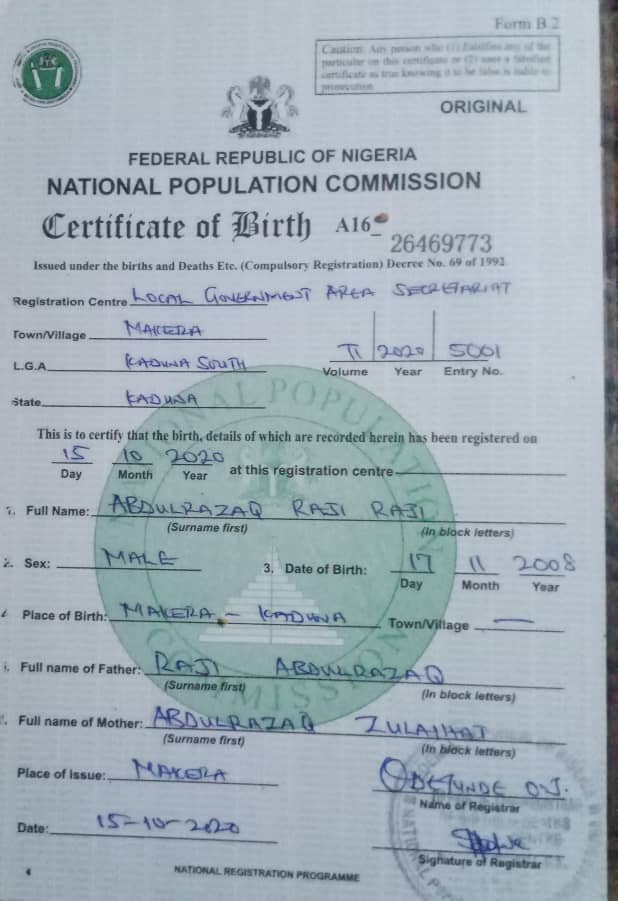 Form B.2
Caution: Any person who (1) Falsifies any of the
particular on this certificate or (2) uses a falsified
certificate as true knowing it to be false is liable to
prosecution
ORIGINAL
FEDERAL REPUBLIC OF NIGERIA
NATIONAL POPULATION COMMISSION
Certificate of Birth A16 26469773
Issued under the births and Deaths Etc. (Compulsory Registration) Decree No. 69 of 1992
Registration Centre LOCAL GOVERNMENT AREA SECRETARIAT
Town/Village MAKERA
L.G.A. KADUNA SOUTH TI 2020 5001
Volume Year Entry No.
State KADUNA
This is to certify that the birth, details of which are recorded herein has been registered on
15 10 2020
Day Month Year at this registration centre
1. Full Name: ABDULRAZAQ RAJI RAJI
(Surname first) (In block letters)
2. Sex: MALE 3. Date of Birth: 17 11 2008
Day Month Year
Place of Birth: MAKERA - KADUNA Town/Village —
Full name of Father: RAJI ABDULRAZAQ
(Surname first) (In block letters)
Full name of Mother: ABDULRAZAQ ZULAIHAT
(Surname first) (In block letters)
Place of Issue: MAKERA ODETUNDE O.J.
Name of Registrar
Date: 15-10-2020
Signature of Registrar
NATIONAL REGISTRATION PROGRAMME
NATIONAL POPULATION COMMISSION